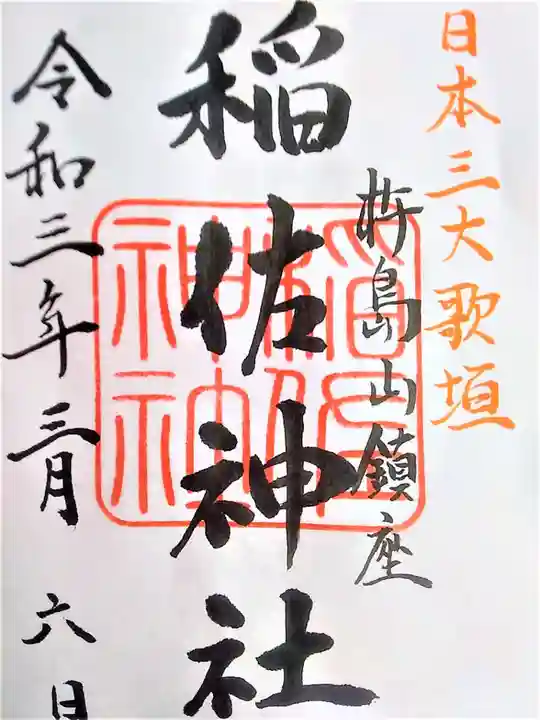 日本三大歌垣
杵島山鎮座
稲佐神社
令和三年三月六日